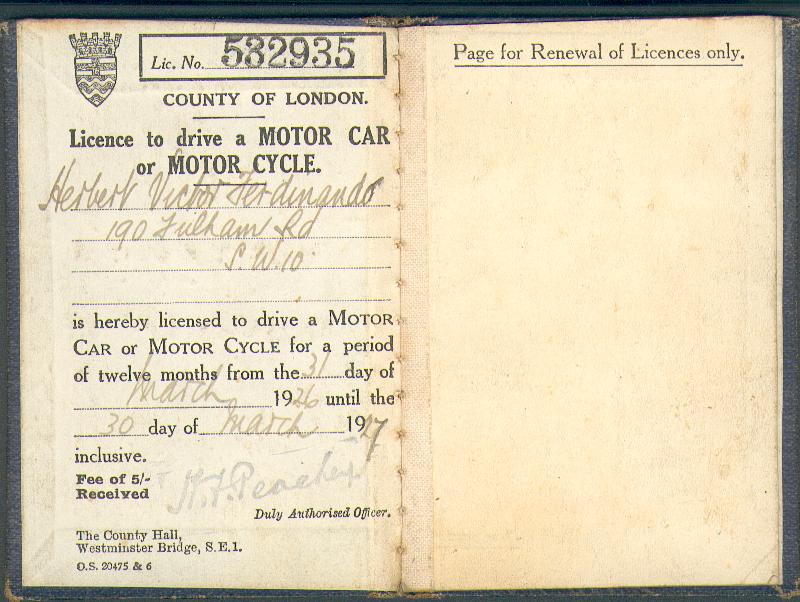 Lic. No. 532935
COUNTY OF LONDON.
Licence to drive a MOTOR CAR
or MOTOR CYCLE.
Herbert Victor Ferdinando
190 Fulham Rd
S.W.10
is hereby licensed to drive a MOTOR
CAR or MOTOR CYCLE for a period
of twelve months from the 31 day of
March 1926 until the
30 day of March 1927
inclusive.
Fee of 5/-
Received
H.F. Peachey
Duly Authorised Officer.
The County Hall,
Westminster Bridge, S.E.1.
O.S. 20475 & 6
Page for Renewal of Licences only.